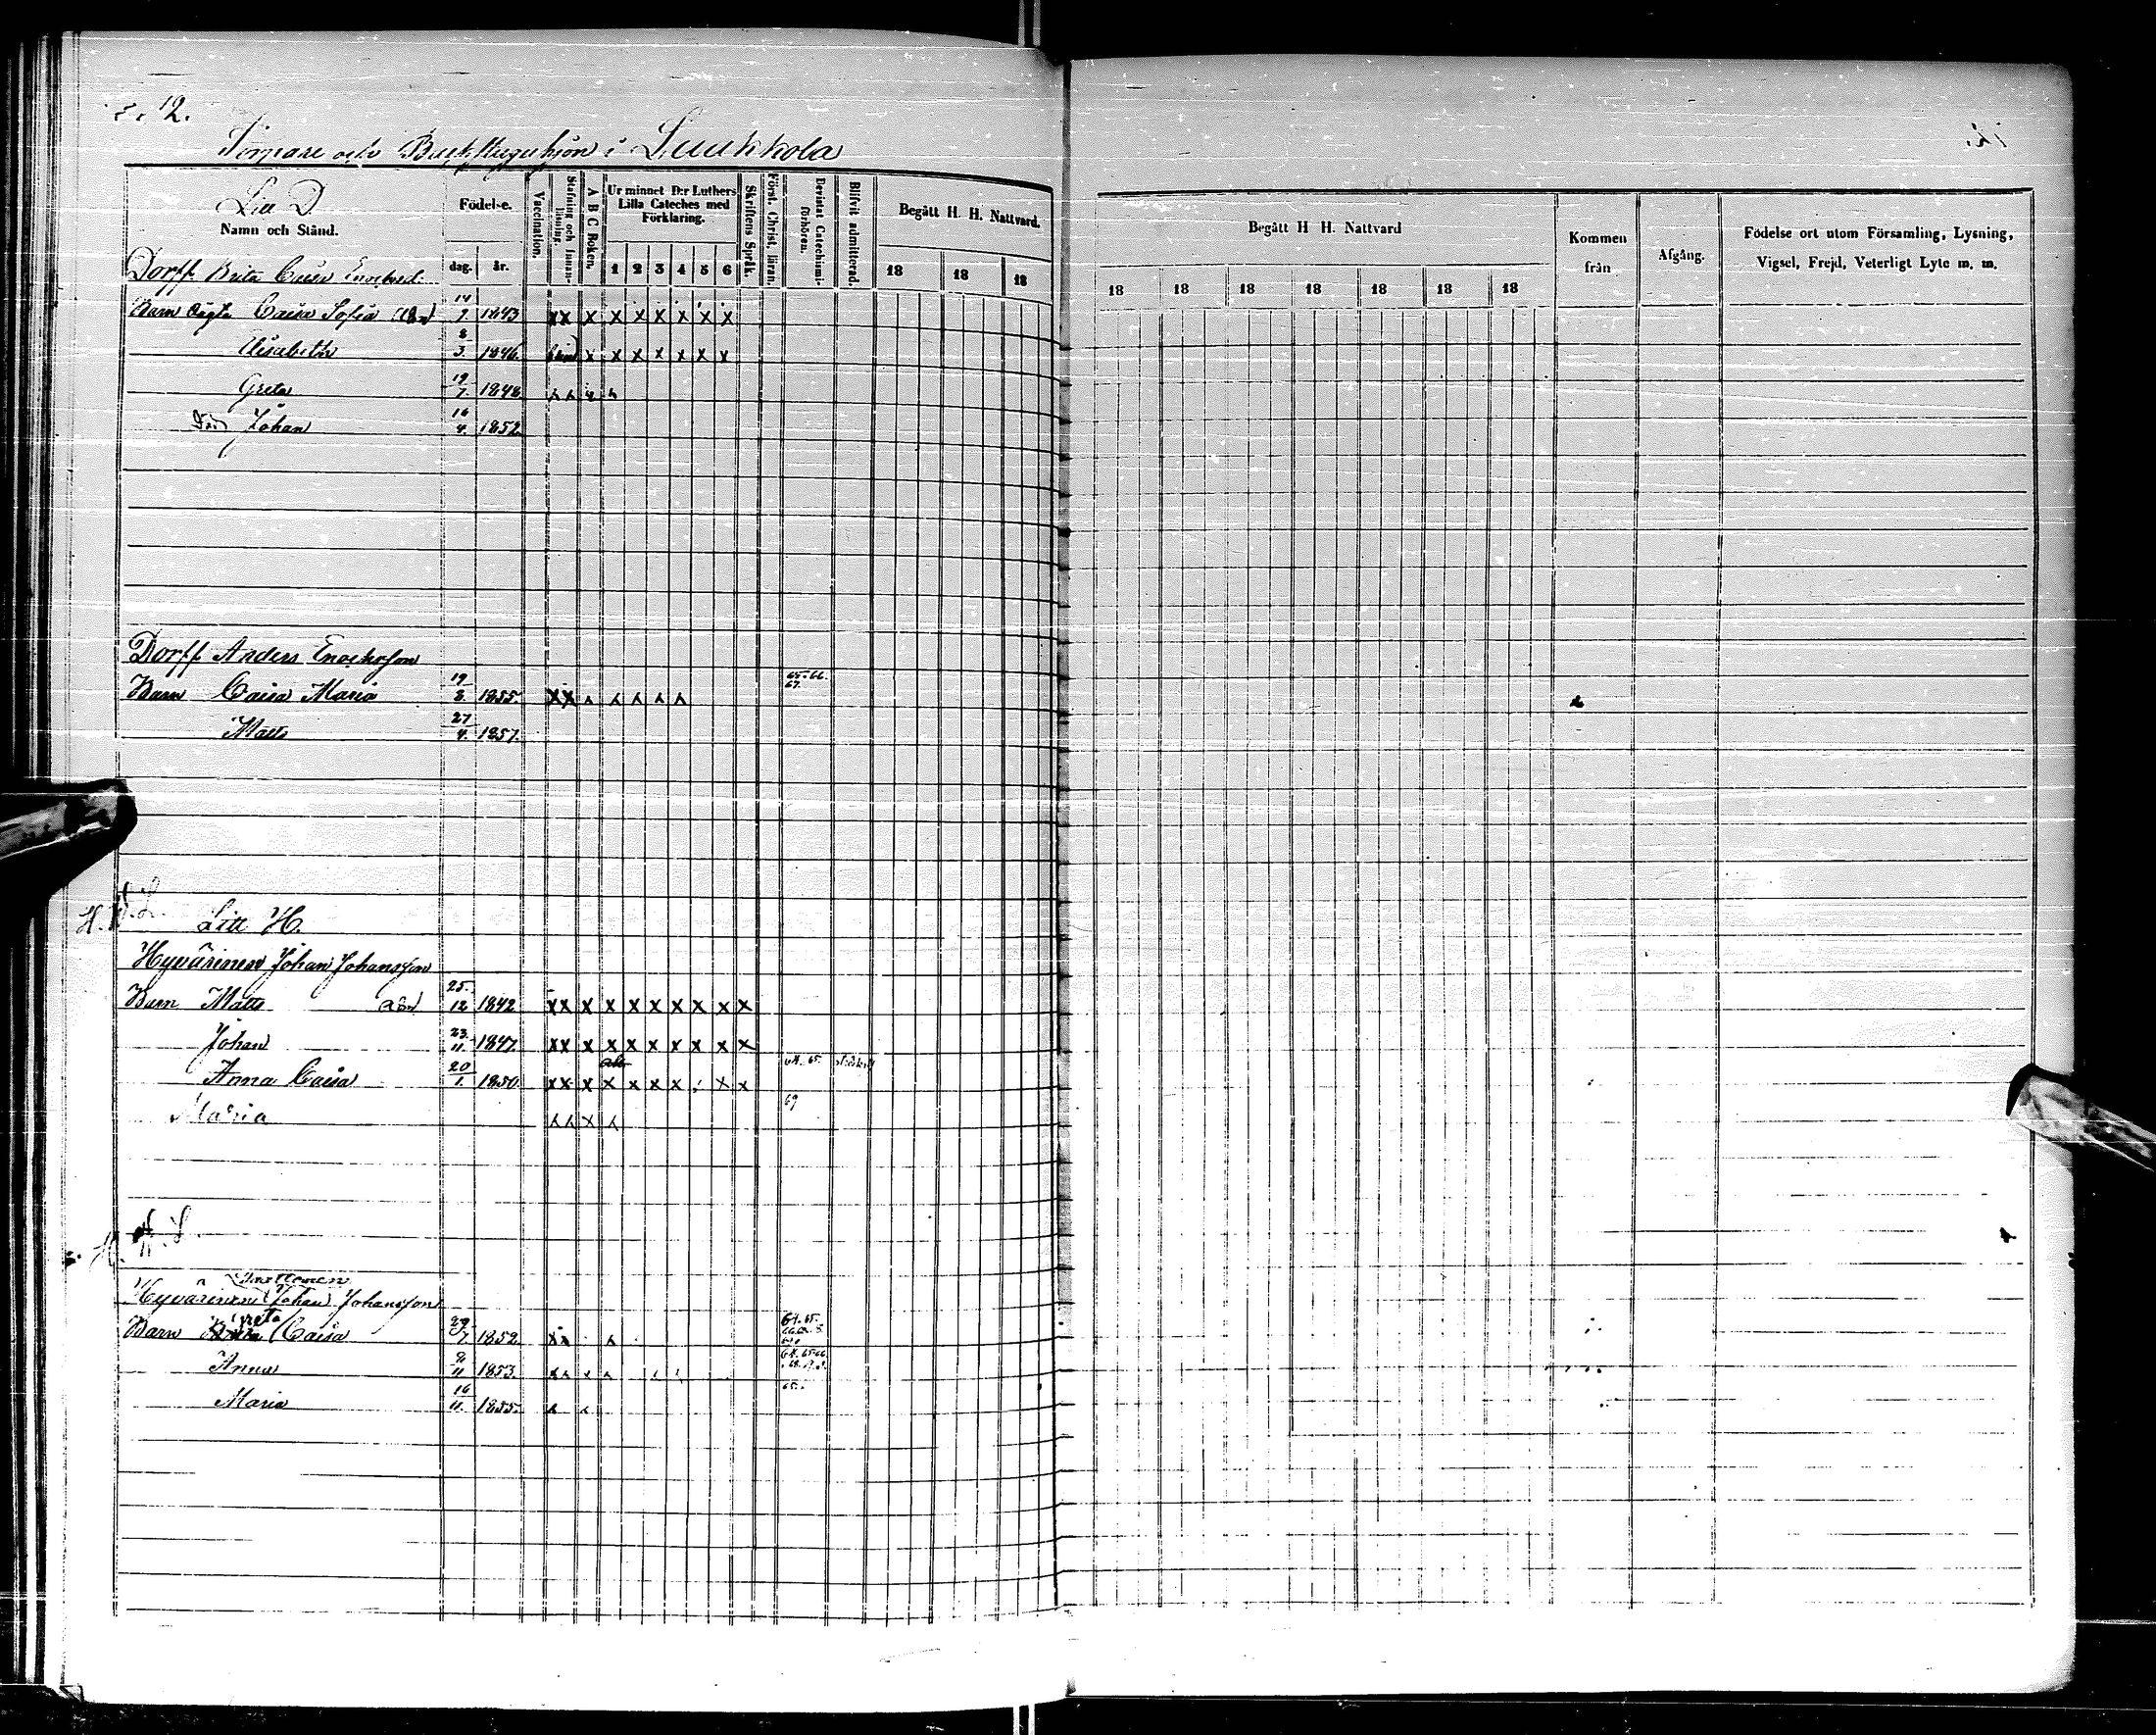 12.
och i Luukkola
Litt D.
Namn och Stånd.
Födelse.
dag. år.
Vaccination.
Stafning och Innan-läsning.
A B C Boken.
Ur minnet D:r Luthers Lilla Cateches med Förklaring.
1 2 3 4 5 6
Skriftens Språk.
Förest. Christ. läran.
Bevistat Catechismi-förhören.
Blifvit admitterad.
Begått H. H. Nattvard.
18 18 18
Begått H H. Nattvard
18 18 18 18 18 18 18
Kommen från
Afgång.
Födelse ort utom Församling, Lysning, Vigsel, Frejd, Veterligt Lyte m. m.
Dorff Brita Caisa
Barn Caisa Sofia 14/7. 1843 x x x x x x x x x
Elisabeth 8/3. 1846. x x x x x x x
Greta 19/7. 1848
Johan 16/4. 1852
Dorff Anders Enochsson
Barn Caisa Maria 19/8. 1855. 65-66. 67.
Matts 27/4. 1857.
Litt H.
Hyvärinen Johan Johansson
Barn Matts 25./12 1842 x x x x x x x x x x
Johan 23/11. 1847. x x x x x x x x x x
Anna Caisa 20/1. 1850. x x x x x x x x x
Maria 69
Hyvärinen Johan Johansson
Barn Greta Caisa 29/7. 1852. 64. 65.
Anna 9/11 1853.
Maria 16/11. 1855. 65.